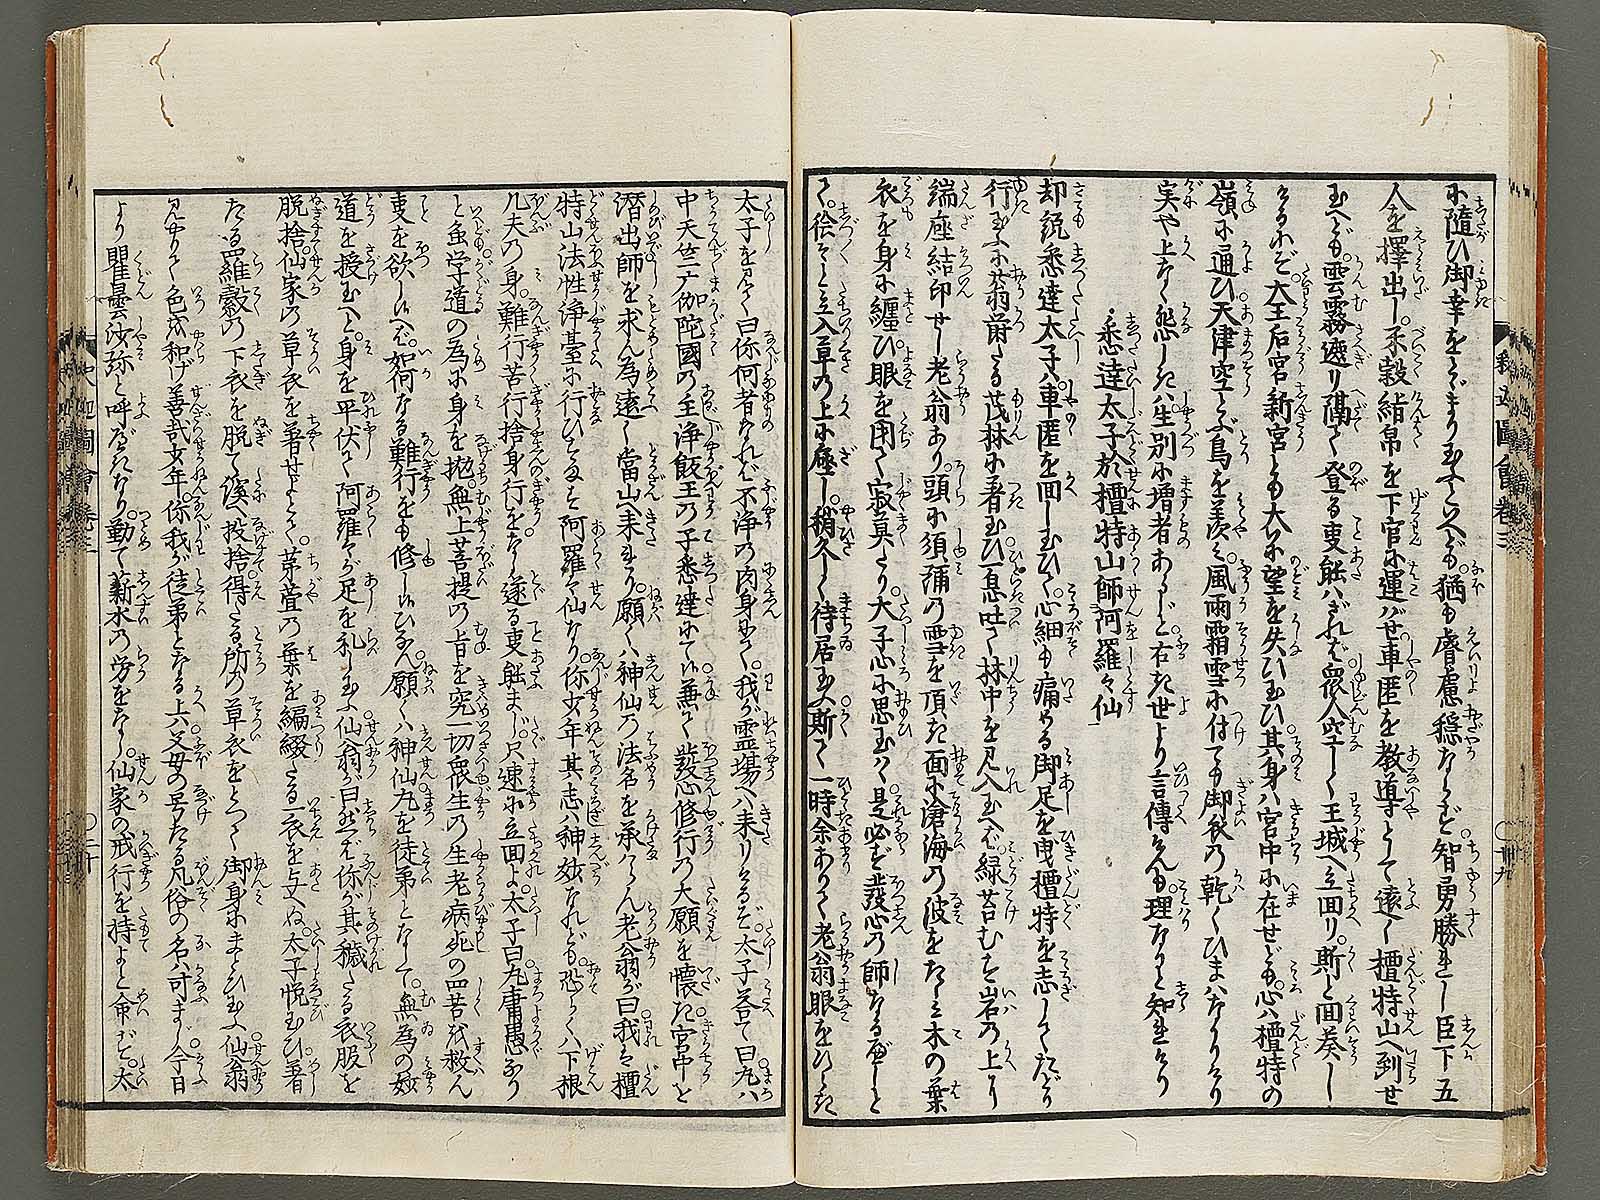 に隨ひ御幸をとゞまり玉ふといへども。猶も睿慮穏ならず。智勇勝れし臣下五
人を擇出し。米穀絹帛を下官に運ばせ車匿を教導として遠く檀特山へ到せ
玉へども。雲霧遮り隔て登る事能はざれば衆人空しく王城へ立回り。斯と回奏し
けるにぞ。大王后宮新宮とも大に望を失ひ玉ひ。其身は宮中に在せども。心は檀特の
嶺に通ひ天津空とぶ鳥を羨み。風雨霜雪に付ても御衣の乾くひまはなかりけり
実や上なく悲しきは。生別に増者あらじと右き世より言傳けんも。理なりと知れけり
悉達太子於檀特山師阿羅々仙
却説悉達太子。車匿を回し玉ひて。心細も痛める御足を曳檀特を志してたどり
行玉ふに。蓊蔚たる茂林に着玉ひ。一息吐て林中を見入玉へば。緑苔むす岩の上り
端座結印せし老翁あり。頭に須彌の雪を頂き面に滄海の波をたゝみ木の葉
衣を身に纏ひ。眼を閉て寂莫たり。太子心に思玉はく。是必ず發心の師なるべしと
て。徐々と立入草の上に座し。稍久しく待居玉ふ。斯て一時余ありて老翁眼をひらき
太子を見て曰。你何者なれば不浄の肉身にて。我が霊場へ来りけるぞ。太子荅て曰。丸は
中天竺摩伽陀國の主浄飯王の子悉達にて候。兼て發心修行の大願を懐き。宮中を
潜出師を求ん為遠く當山へ来れり。願くは神仙の法名を承はらん。老翁が曰。我は檀
特山法性浄臺に行ひをなす。阿羅々仙なり。你少年其志は神妙なれども。恐くは下根
凡夫の身。難行苦行捨身行をなし遂る事能まじ。尺速に立回よ。太子曰。丸庸愚なり
と虽。学道の為に身を抛。無上菩提の旨を究。一切衆生の生老病死の四苦を救ん
事を欲し候へば。如何なる難行をも修し候ひなん。願くは神仙丸を徒弟となして。無為の妙
道を授玉へと。身を平伏て阿羅々が足を礼し玉ふ。仙翁が曰。然ば你が其穢たる衣服を
脱捨仙家の草衣を着せよとて。茅萱の葉を編綴たる一衣を与へぬ。太子悦玉ひ着
たる羅縠の下衣を脱て溪へ投捨。得たる所の草衣をとつて御身にまとひ玉ふ。仙翁
見やりて色を和げ善哉少年。你我が徒弟となる上は。父母の号たる凡俗の名は可まじ。今日
より瞿曇沙弥と呼べきなり。勤て薪水の労をなし。仙家の戒行を持よと命ず。太